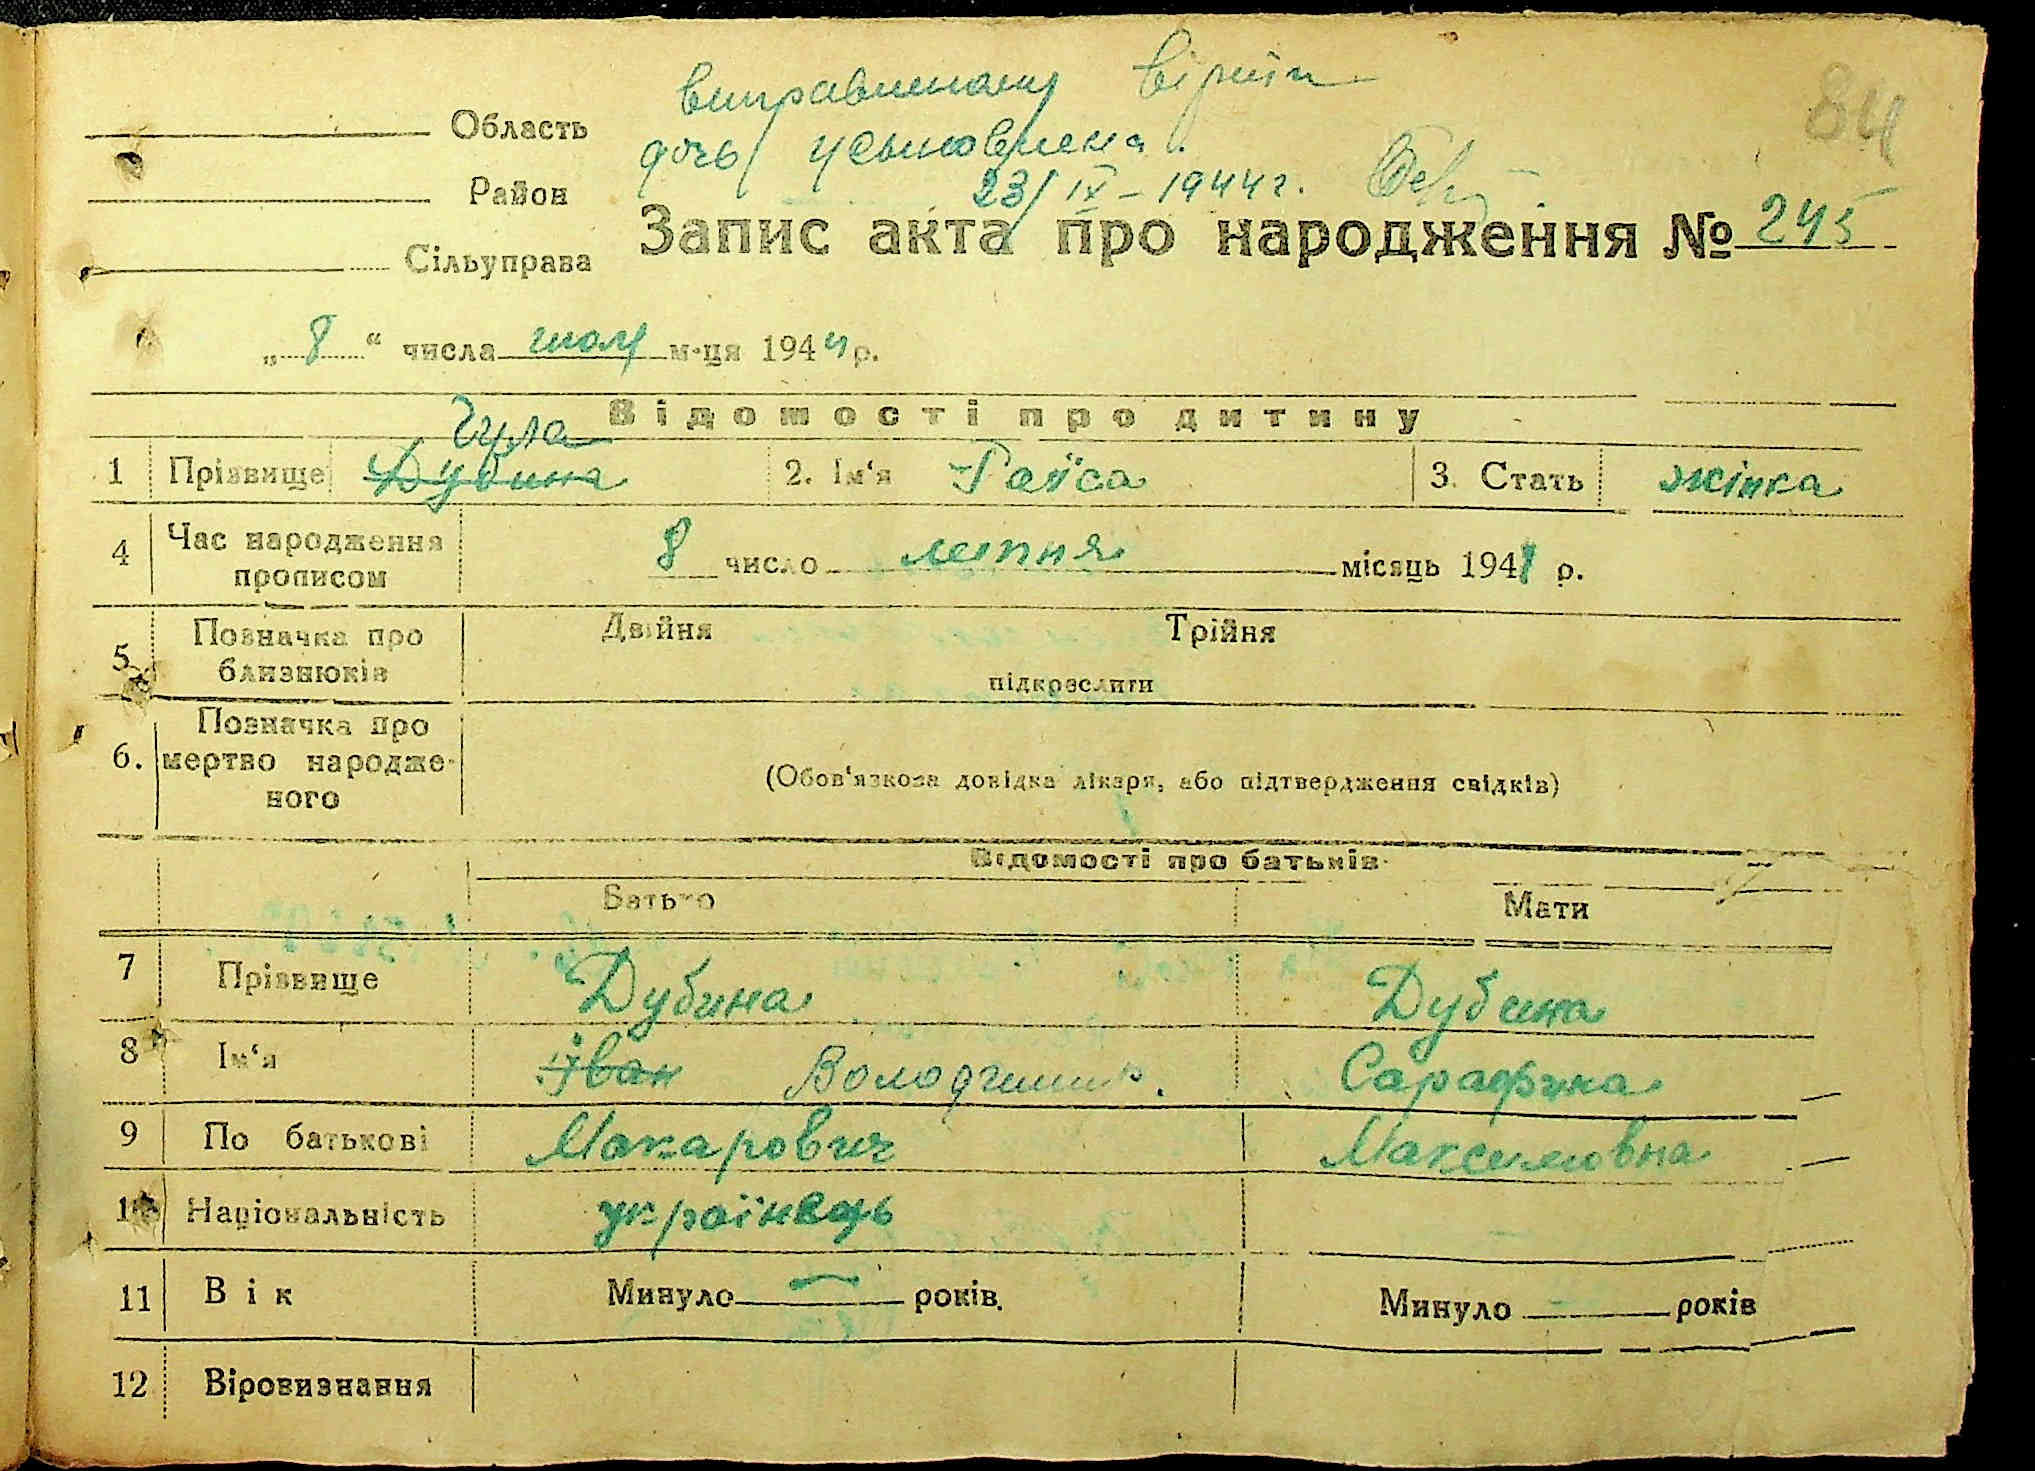 виправленому вірить
дочь усыновлена.
23/IX-1944 г.
84
Область
Район
Сільуправа
Запис акта про народження № 245
„ 8 “ числа июля м-ця 1944 р.
Відомості про дитину
Гула
1 Прізвище Дубина 2. Ім‘я Раїса 3. Стать жінка
4 Час народження прописом 8 число липня місяць 1941 р.
5 Позначка про близнюків Двійня Трійня
підкреслити
6. Позначка про мертво народже-ного (Обов‘язкова довідка лікаря, або підтвердження свідків)
Відомості про батьків
Батько Мати
7 Прізвище Дубина Дубина
8 Ім‘я Іван Володимир. Сарафина
9 По батькові Макарович Максимовна
10 Національність українець
11 Вік Минуло років. Минуло років
12 Віровизнання